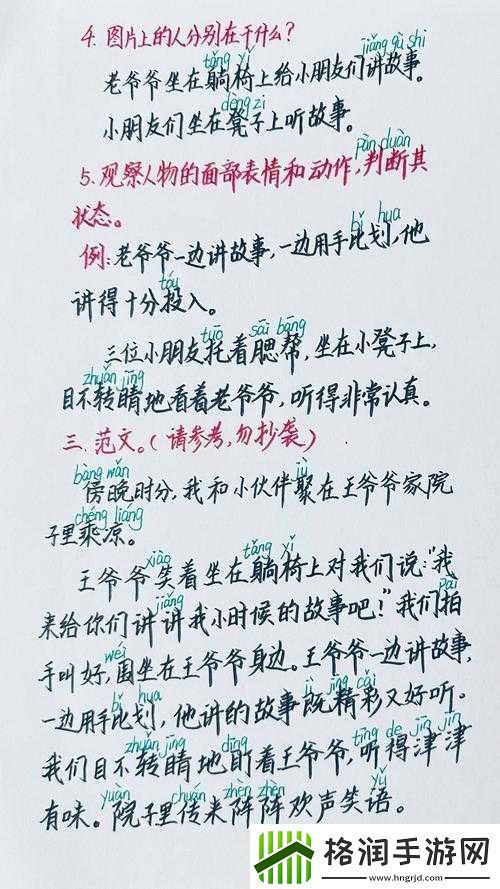 4. 图片上的人分别在干什么?
tǎng yǐ jiǎng gù shi
老爷爷坐在躺椅上给小朋友们讲故事。
dèng zi
小朋友们坐在凳子上听故事。
pàn duàn
5. 观察人物的面部表情和动作,判断其
状态。
bǐ hua
例:老爷爷一边讲故事,一边用手比划,他
tóu
讲得十分投入。
tuō sāi bāng
三位小朋友托着腮帮,坐在小凳子上,
zhuǎn jīng
目不转睛地看着老爷爷,听得非常认真。
三.范文。(请参考,勿抄袭)
bàng wǎn jù
傍晚时分,我和小伙伴聚在王爷爷家院
chéng liáng
子里乘凉。
xiào tǎng yǐ
王爷爷笑着坐在躺椅上对我们说:"我
jiǎng pāi
来给你们讲讲我小时候的故事吧!"我们拍
wéi
手叫好,围坐在王爷爷身边。王爷爷一边讲故事,
bǐ hua jì jīng cǎi
一边用手比划,他讲的故事既精彩又好听。
zhuǎn jīng dīng tīng de jīn jīn
我们目不转睛地盯着王爷爷,听得津津
yuàn chuán zhèn zhèn yǔ
有味。院子里传来阵阵欢声笑语。
格润手游网
www.hngrjd.com